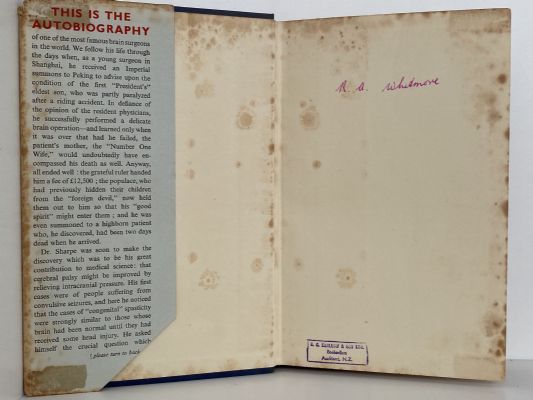 THIS IS THE
AUTOBIOGRAPHY
of one of the most famous brain surgeons
in the world. We follow his life through
the days when, as a young surgeon in
Shanghai, he received an Imperial
summons to Peking to advise upon the
condition of the first "President's"
eldest son, who was partly paralyzed
after a riding accident. In defiance of
the opinion of the resident physicians,
he successfully performed a delicate
brain operation—and learned only when
it was over that had he failed, the
patient's mother, the "Number One
Wife," would undoubtedly have en-
compassed his death as well. Anyway,
all ended well : the grateful ruler handed
him a fee of £12,500 ; the populace, who
had previously hidden their children
from the "foreign devil," now held
them out to him so that his "good
spirit" might enter them ; and he was
even summoned to a highborn patient
who, he discovered, had been two days
dead when he arrived.
Dr. Sharpe was soon to make the
discovery which was to be his great
contribution to medical science: that
cerebral palsy might be improved by
relieving intracranial pressure. His first
cases were of people suffering from
convulsive seizures, and here he noticed
that the cases of "congenital" spasticity
were strongly similar to those whose
brain had been normal until they had
received some head injury. He asked
himself the crucial question which
[please turn to back
R. A. Whitmore
& SON LTD.
Booksellers
Auckland, N.Z.